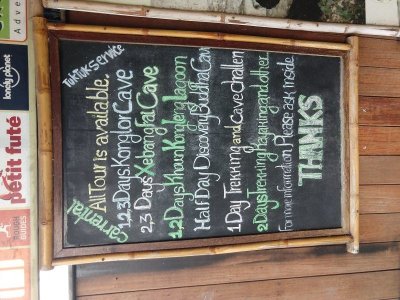 TukTuk Service
Car rental
All Tour is available.
1,2,3 Days Konglor Cave
2,3 Days Xebangfai Cave
1,2 Days Khoun Kongleng lagoon
Half Day Discovery Buddha Cav
1 Day Trekking and Cave challen
2 Days Trekking, kayaking and other
For more information Please ask inside
THANKS
lonely planet
petit futé
ROUGH GUIDES